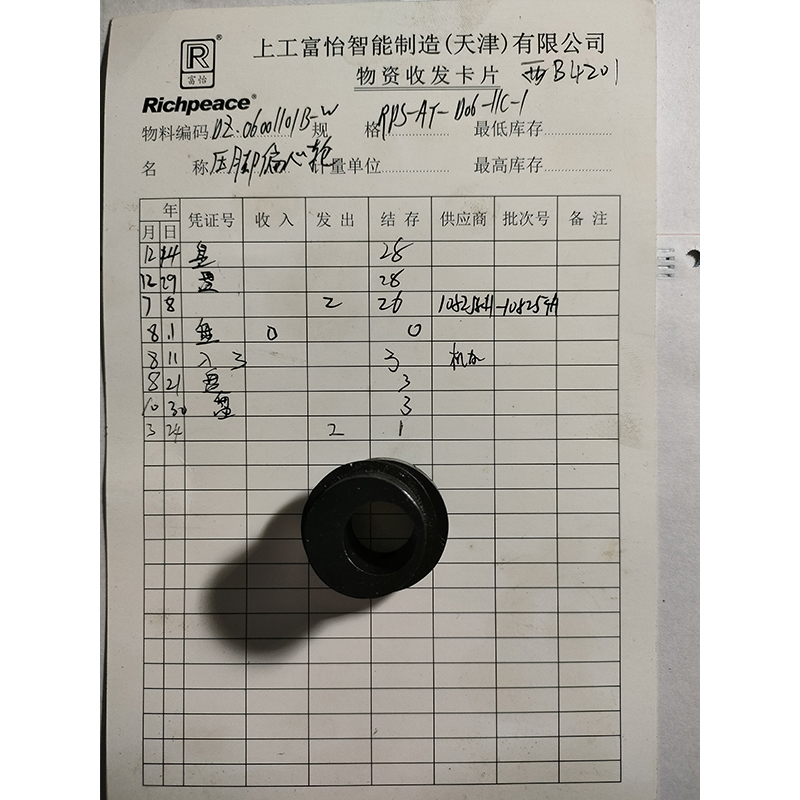 R®
富怡
Richpeace®
上工富怡智能制造(天津)有限公司
物资收发卡片 西B4201
物料编码 DZ·06001101B-W 规格 RPS-AT-D06-11C-1 最低库存
名称 压脚偏心轮 计量单位 最高库存
年 凭证号 收入 发出 结存 供应商 批次号 备注
月 日
12 14 盘 28
12 29 盘 28
7 8 2 26
8 1 盘 0 0
8 11 入 3 3 机加
8 21 盘 3
10 30 盘 3
3 24 2 1